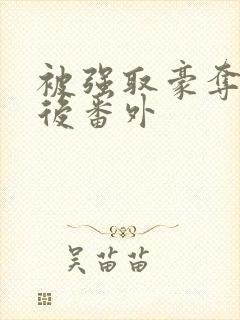 被强取豪夺
后番外
吴苗苗